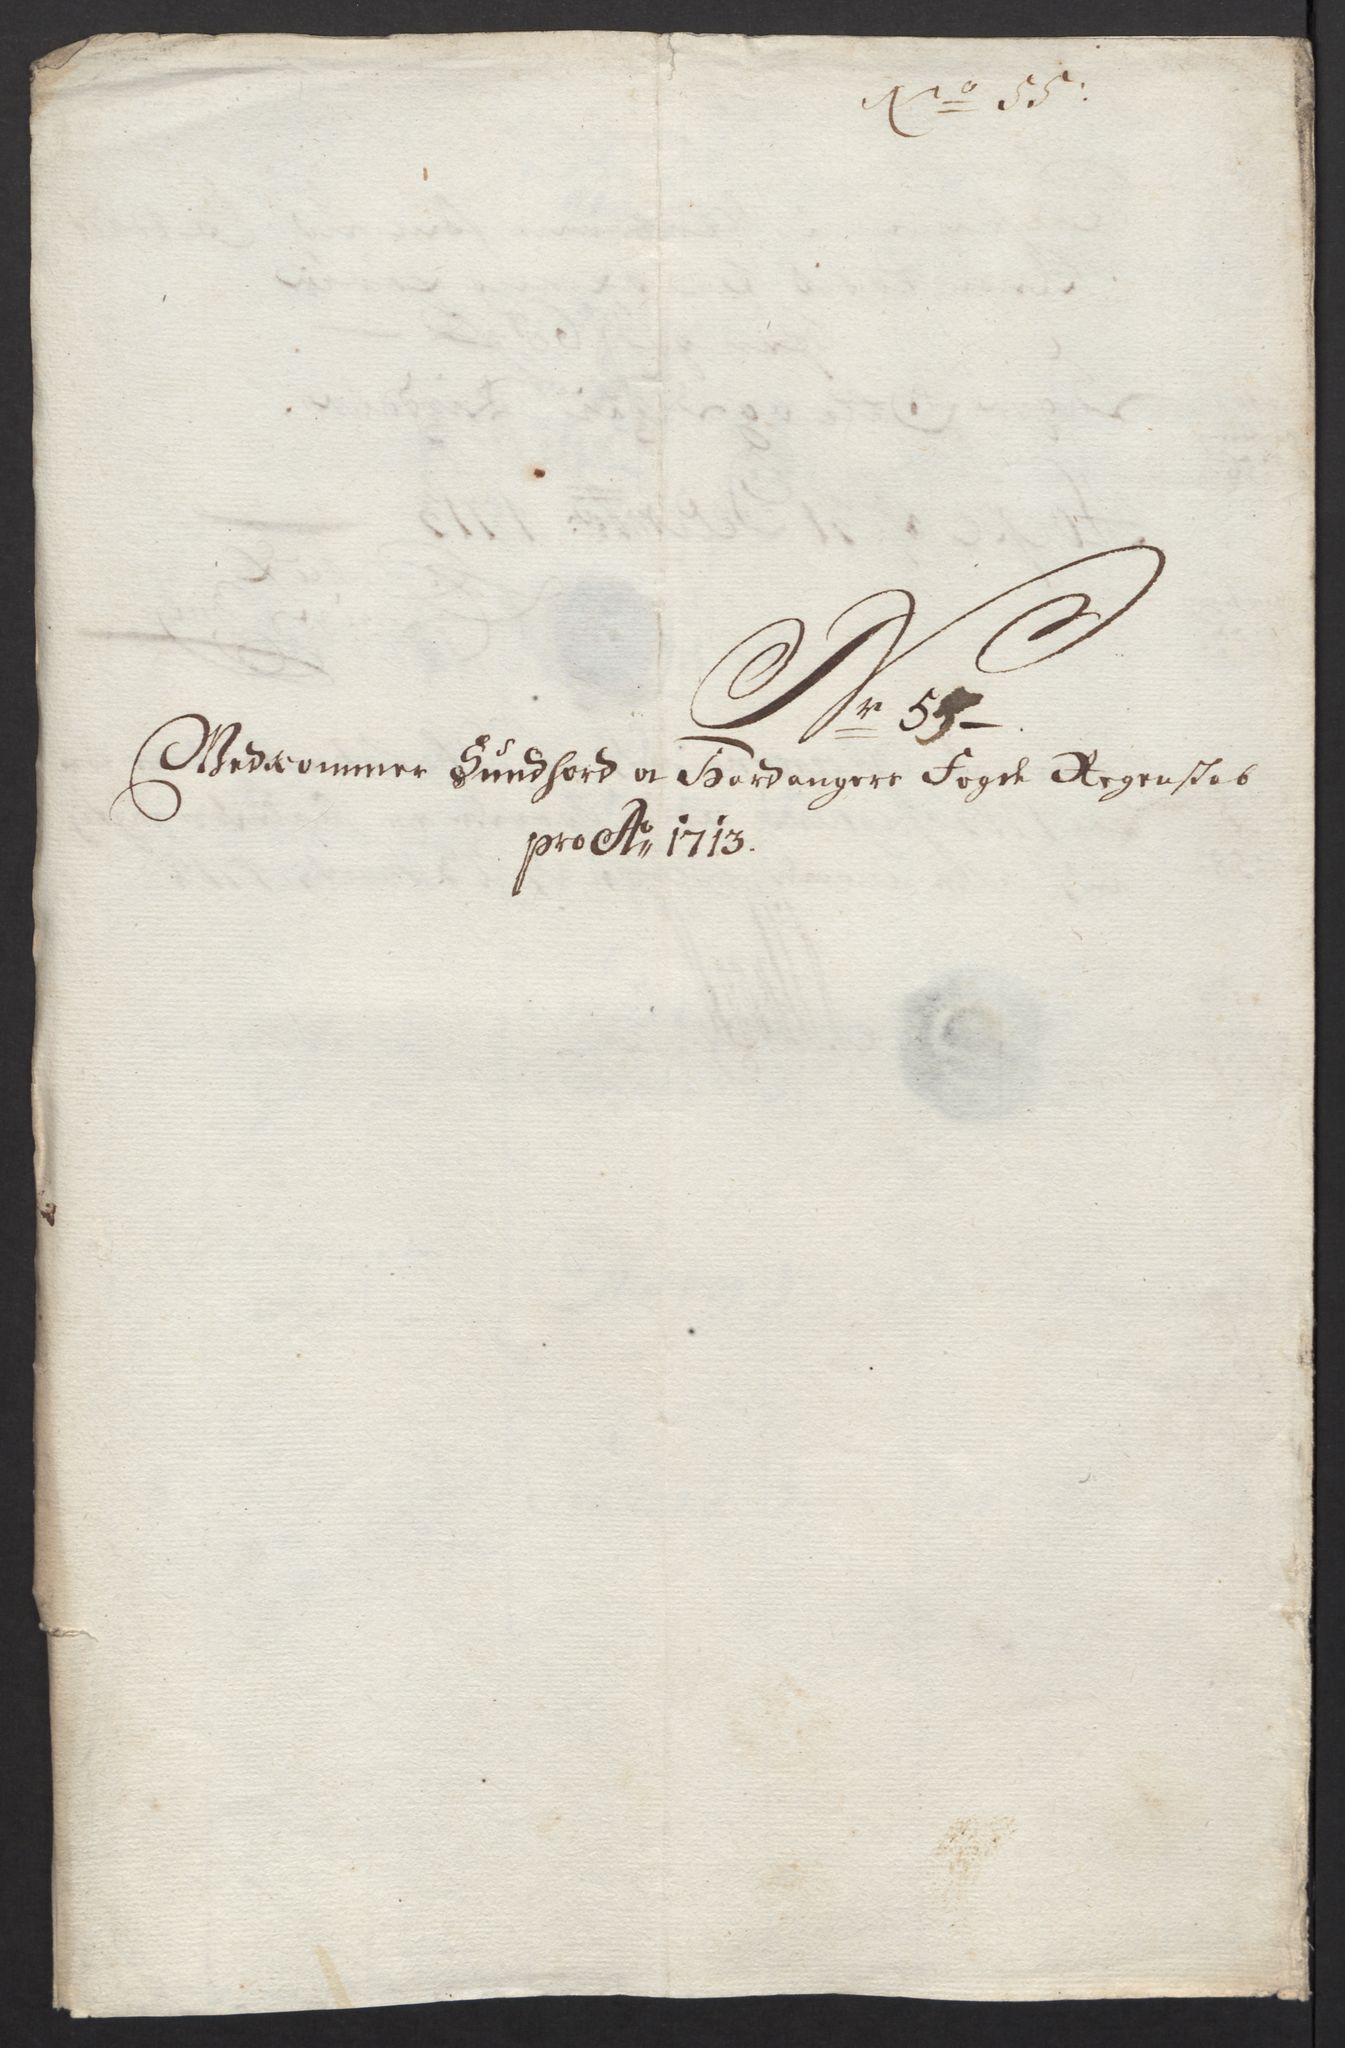 No 55:
Nr 55
Vedkommer Sundhord oc Hardangers Fogde Regenskab
pro Ao 1713.